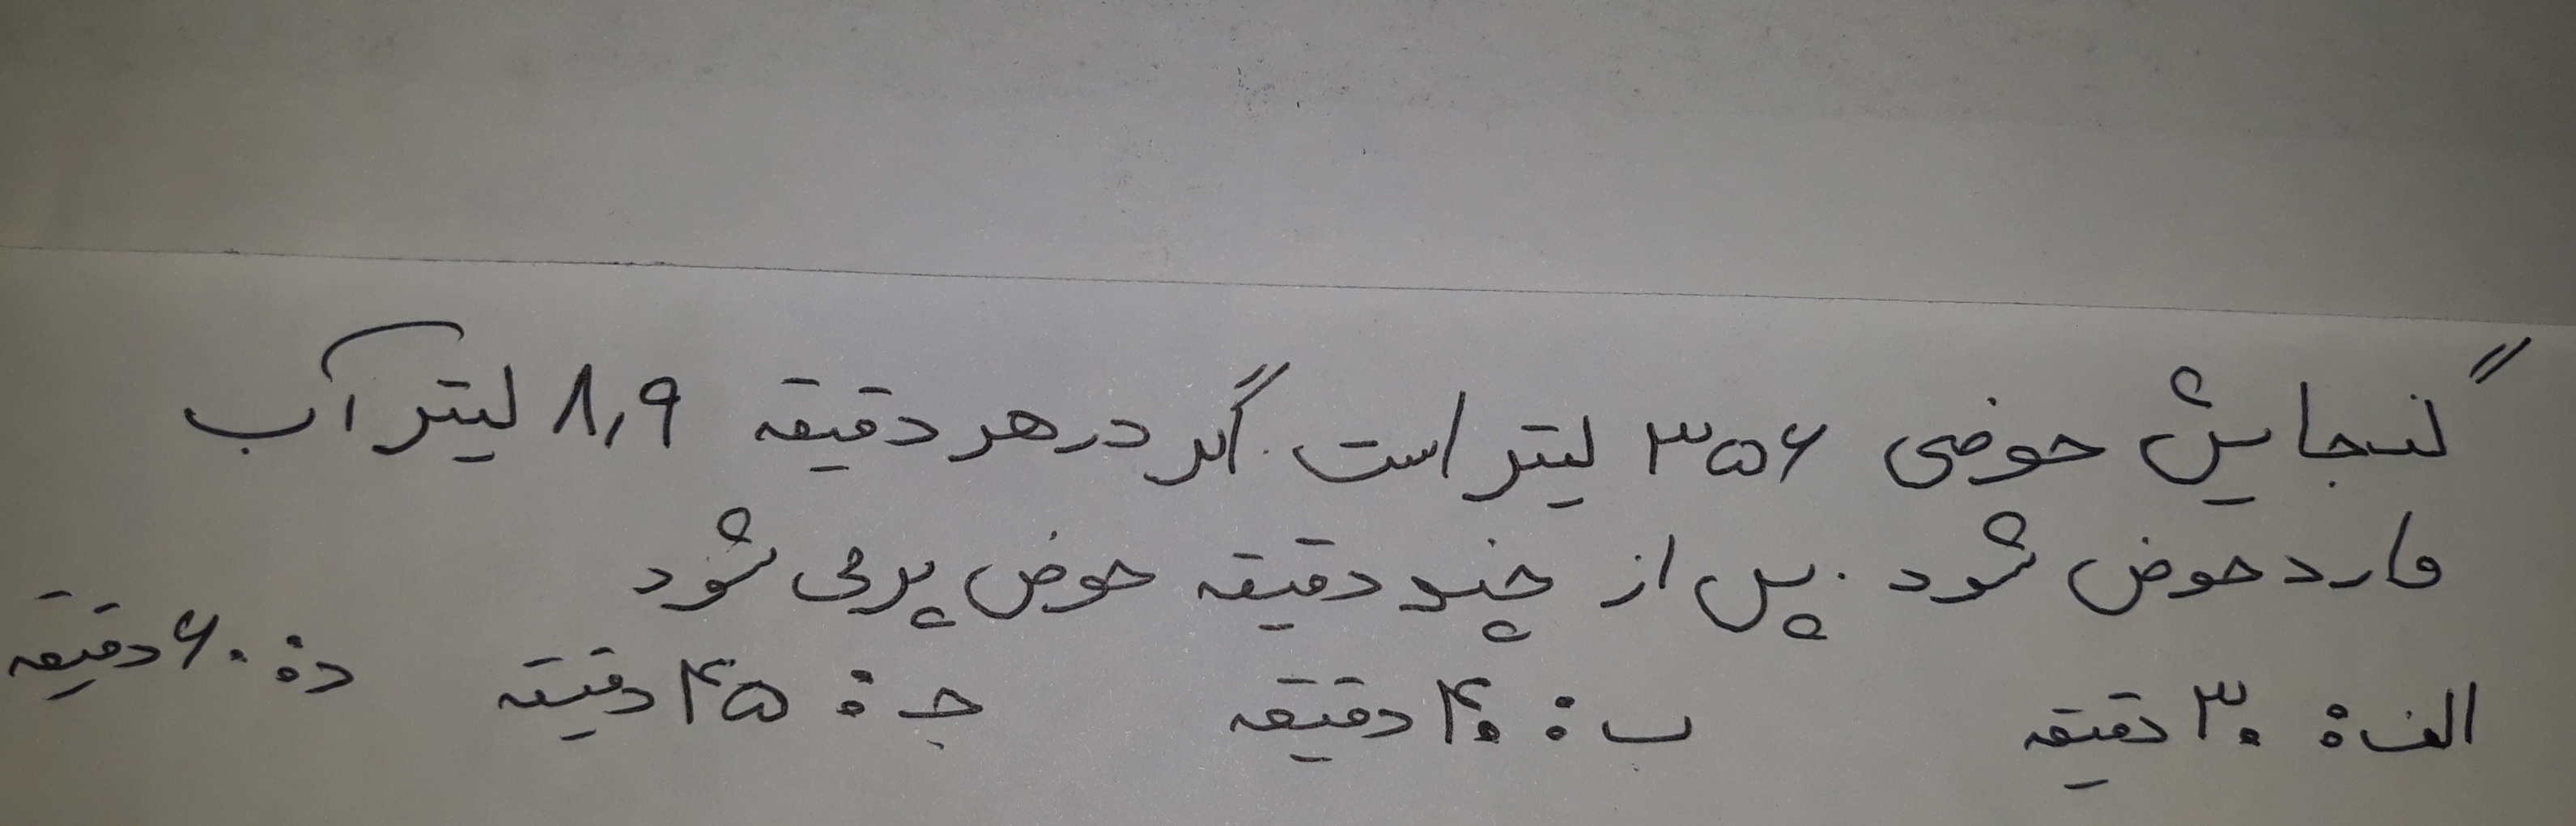 گنجایش حوضی ۳۵۶ لیتر است. اگر در هر دقیقه ۸٫۹ لیتر آب
وارد حوض شود. پس از چند دقیقه حوض پر می شود
الف: ۳۰ دقیقه ب: ۴۰ دقیقه ج: ۴۵ دقیقه د: ۶۰ دقیقه